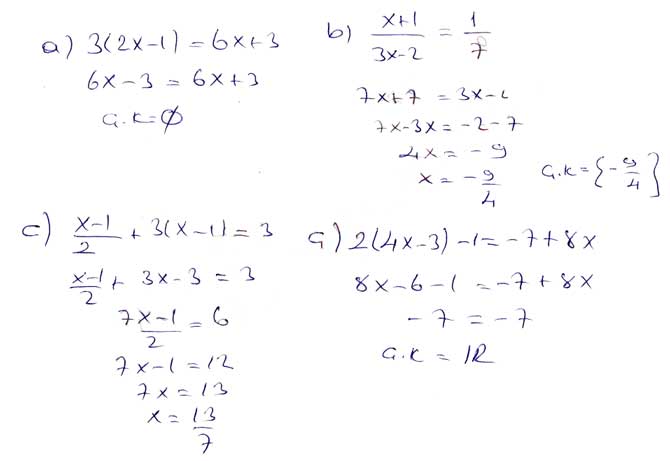 a) 3(2x-1) = 6x+3
6x-3 = 6x+3
Ç.K=∅
b) x+1/3x-2 = 1/7
7x+7 = 3x-2
7x-3x = -2-7
4x = -9
x = -9/4
Ç.K = {-9/4}
c) x-1/2 + 3(x-1) = 3
x-1/2 + 3x-3 = 3
7x-1/2 = 6
7x-1 = 12
7x = 13
x = 13/7
ç) 2(4x-3)-1 = -7+8x
8x-6-1 = -7+8x
-7 = -7
Ç.K = IR